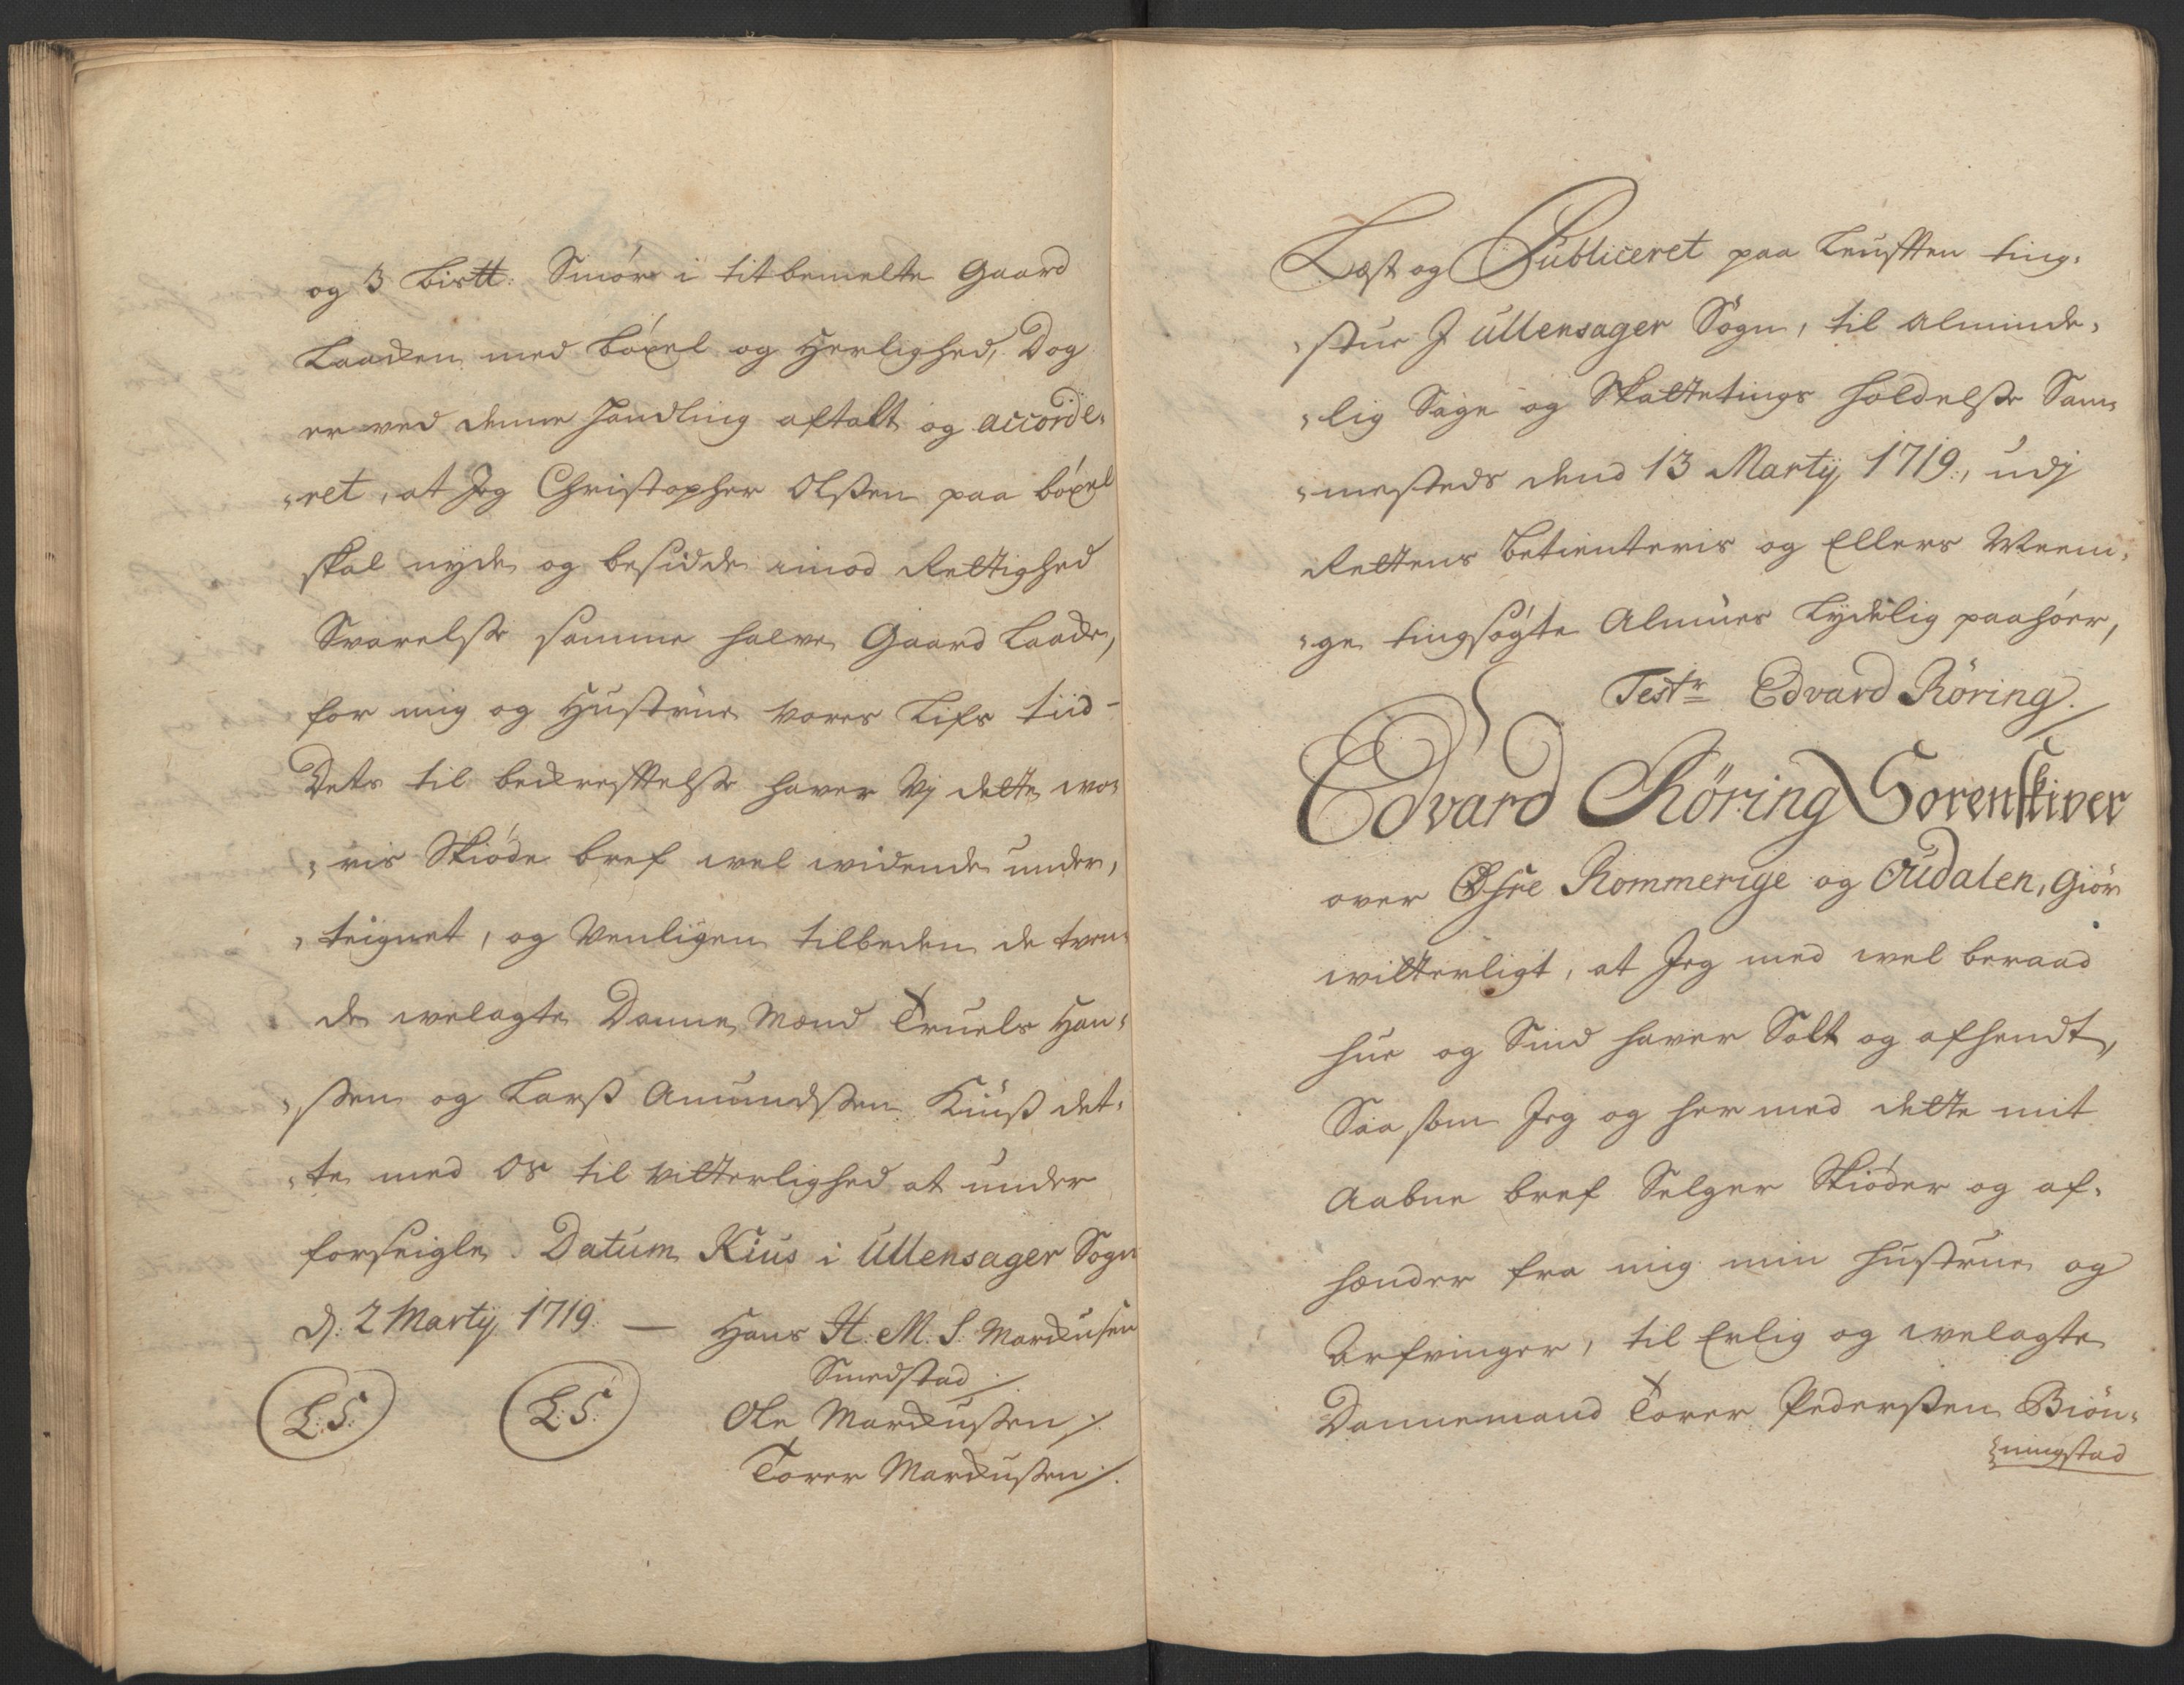 og 3 bistt: Smör i titbemelte Gaard
Laache med böxel og Herlighed, Dog
er ved denne Handling aftalt og accorde,
,ret, at Jeg Christopher Olßen paa böxel
skal nyde og besidde imod Rettighed
Svarelse samme halve Gaard Laache,
for mig og Hustrue vores Lifs tiid -
Dets til bekreftelse haver Vj dette wo,
,ris Skiöde bref wel widende under,
,teignet, og Venligen tilbeden de tven,
de welagte Danne Mænd Truels Han,
,ßen og Larß Amundßen Kiuß det,
,te med Os til Vitterlighed at under
forseigle. Datum Kius i Ullensager Sogn
d: 2 Martij 1719. — Hans H. M. S. Markusen
Smedstad /.
L: S: L: S: Ole Markußen /.
Torer Markußen /.
Læst og Publiceret paa ting,
,stue J Ullensager Sogn, til Alminde,
,lig Sage og Skattetings Holdelse Sam,
,mesteds dend 13 Martij 1719., udj
Rettens betienteris og Ellers Meeni,
,ge tingsögte Almues Lydelig paahöer,
Testr Edvard Röring. /
Edvard Röring Sorenskiver
over Øfre Rommerige og Oudalen, Giör
witterligt, at Jeg med wel beraad
hue og Sind haver Solt og afhendt,
Saa som Jeg og her med dette mit
Aabne bref Selger Skiöder og af,
hender fra mig min Hustrue og
Arfvinger, til Erlig og welagte
Dannemand Torer Pederßen Biön,
,ningstad